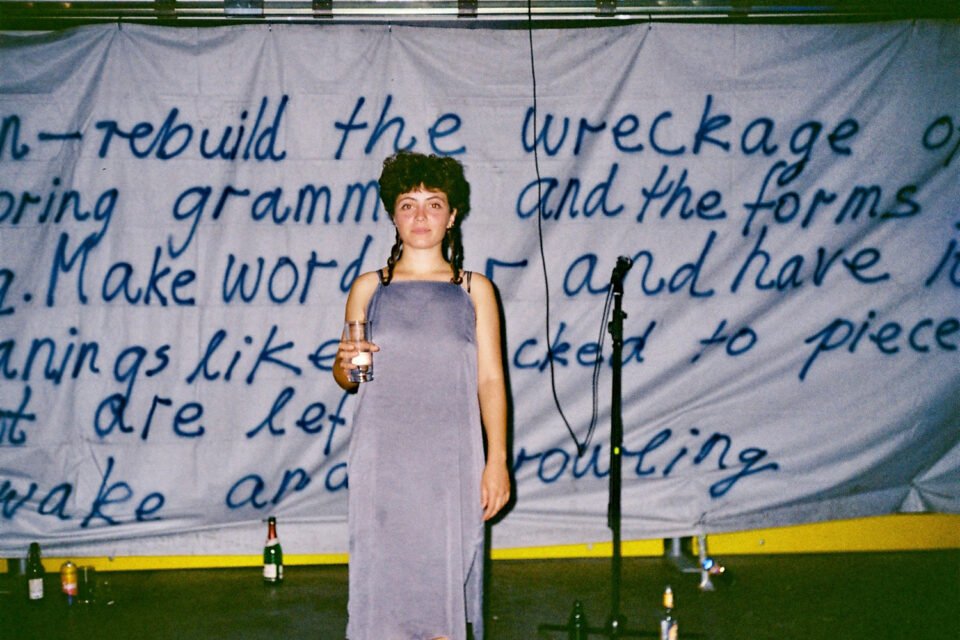 n-rebuild the wreckage o
oring gramm and the forms
g. Make word r and have i
anings like cked to piece
t are lef
wake and rowling